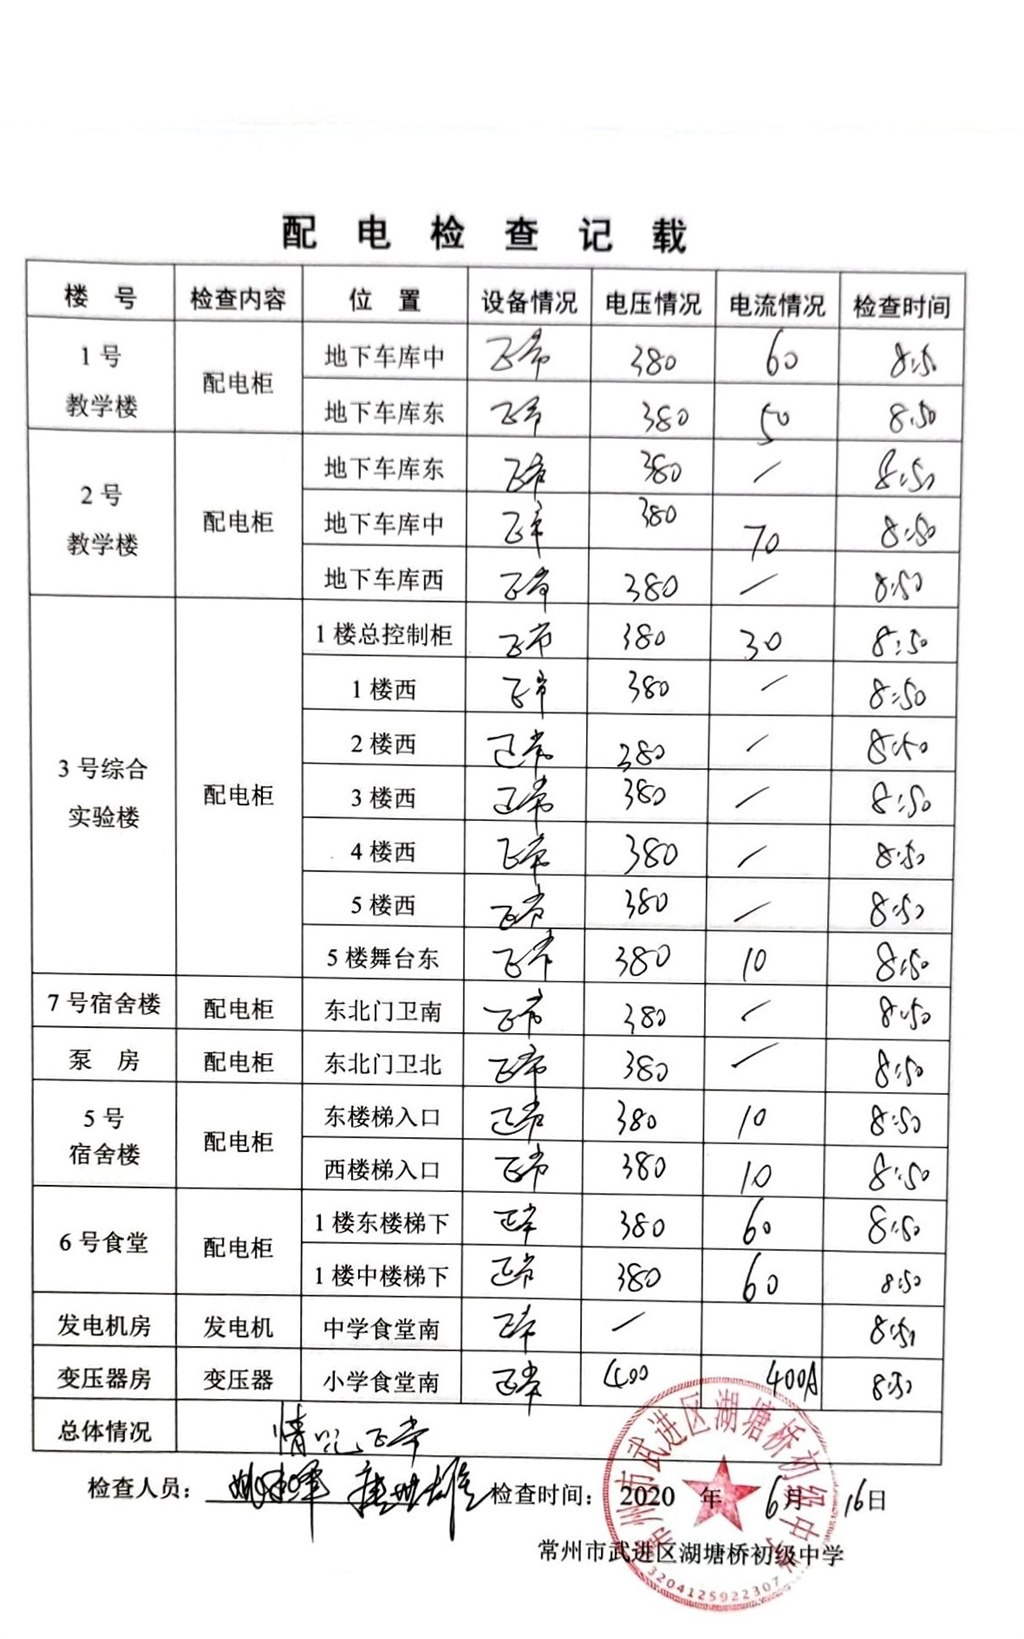 配电检查记载
楼 号 检查内容 位 置 设备情况 电压情况 电流情况 检查时间
1号教学楼 配电柜 地下车库中 正常 380 60 8:50
地下车库东 正常 380 50 8:50
2号教学楼 配电柜 地下车库东 正常 380 / 8:50
地下车库中 正常 380 70 8:50
地下车库西 正常 380 / 8:50
3号综合实验楼 配电柜 1楼总控制柜 正常 380 30 8:50
1楼西 正常 380 / 8:50
2楼西 正常 380 / 8:50
3楼西 正常 380 / 8:50
4楼西 正常 380 / 8:50
5楼西 正常 380 / 8:50
5楼舞台东 正常 380 10 8:50
7号宿舍楼 配电柜 东北门卫南 正常 380 / 8:50
泵 房 配电柜 东北门卫北 正常 380 / 8:50
5号宿舍楼 配电柜 东楼梯入口 正常 380 10 8:50
西楼梯入口 正常 380 10 8:50
6号食堂 配电柜 1楼东楼梯下 正常 380 60 8:50
1楼中楼梯下 正常 380 60 8:50
发电机房 发电机 中学食堂南 正常 / 8:50
变压器房 变压器 小学食堂南 正常 400 400A 8:50
总体情况 情况正常
检查人员： 检查时间： 2020 年 6月 16日
常州市武进区湖塘桥初级中学
常州市武进区湖塘桥初级中学
3204125922307